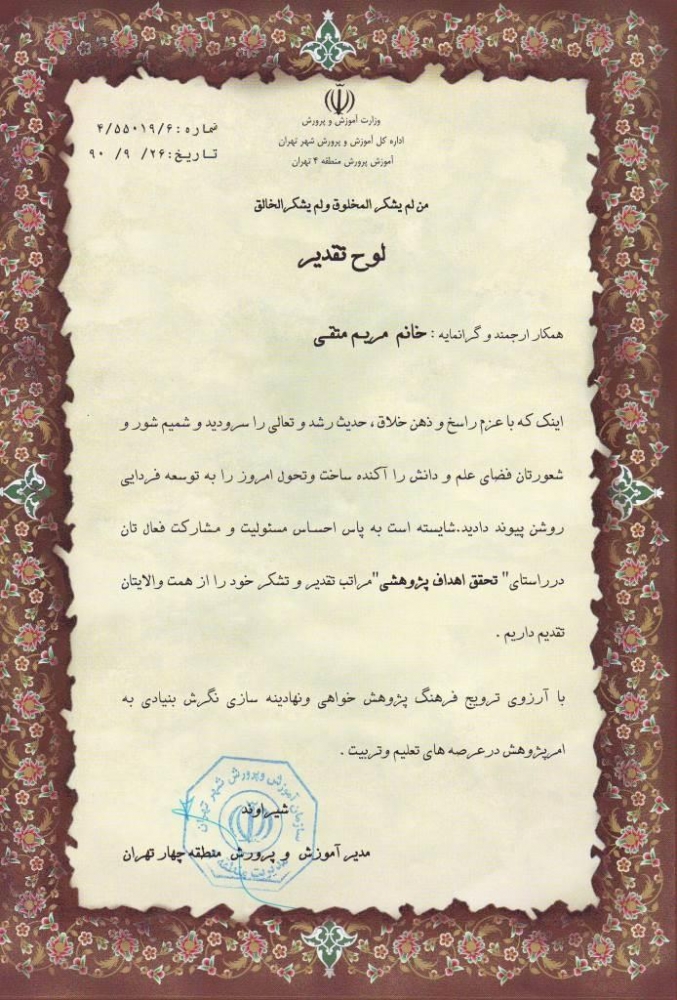 وزارت آموزش و پرورش
شماره : ۴/۵۵۰۱۹/۶
اداره کل آموزش و پرورش شهر تهران
تاریخ: ۲۶/ ۹/ ۹۰
آموزش پرورش منطقه ۴ تهران
من لم یشکر المخلوق ولم یشکرالخالق
لوح تقدیر
همکار ارجمند و گرانمایه : خانم مریم متقی
اینک که با عزم راسخ و ذهن خلاق ، حدیث رشد و تعالی را سرودید و شمیم شور و
شعورتان فضای علم و دانش را آکنده ساخت وتحول امروز را به توسعه فردایی
روشن پیوند دادید.شایسته است به پاس احساس مسئولیت و مشارکت فعال تان
درراستای" تحقق اهداف پژوهشی"مراتب تقدیر و تشکر خود را از همت والایتان
تقدیم داریم .
با آرزوی ترویج فرهنگ پژوهش خواهی ونهادینه سازی نگرش بنیادی به
امرپژوهش درعرصه های تعلیم وتربیت .
سازمان آموزش و پرورش شهر تهران
شیراوند
مدیر آموزش و پرورش منطقه چهار تهران
مدیریت